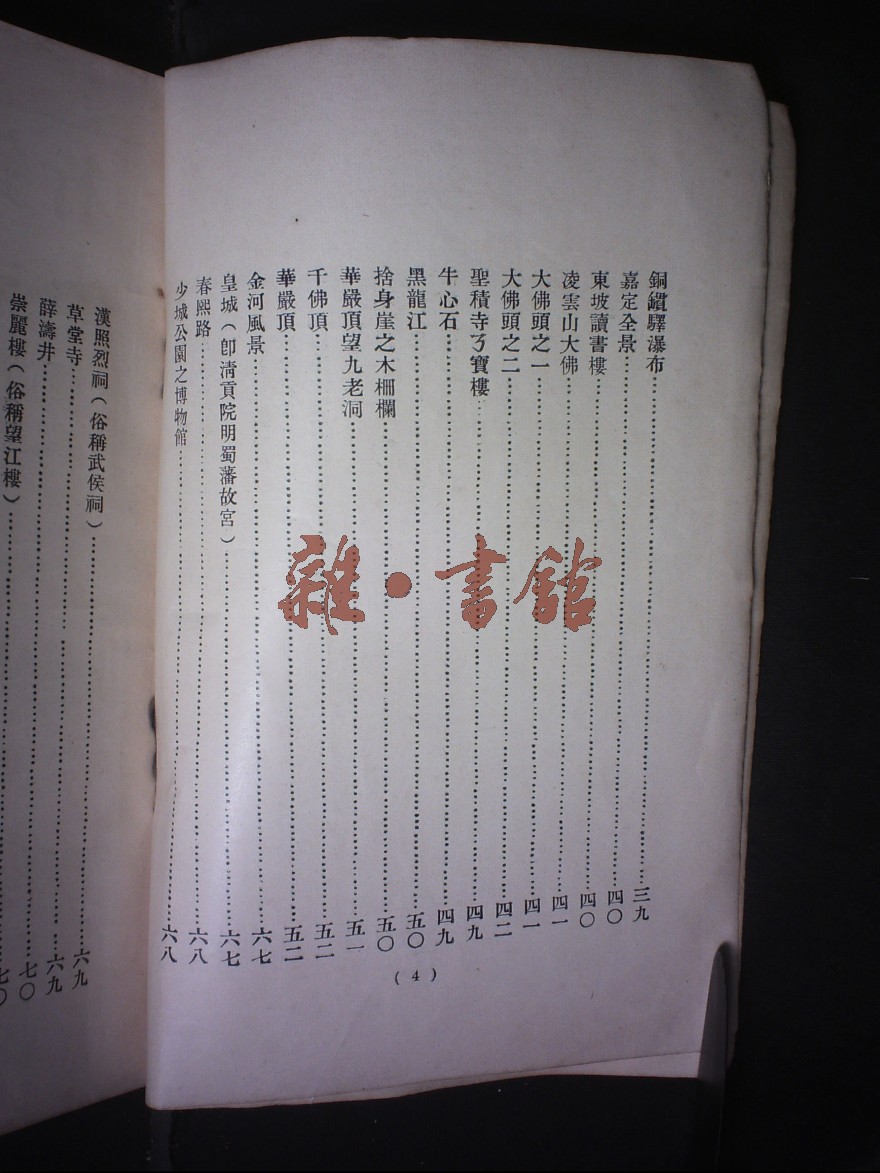 銅鑵驛瀑布……三九
嘉定全景……四〇
東坡讀書樓……四〇
凌雲山大佛……四一
大佛頭之一……四一
大佛頭之二……四二
聖積寺了寶樓……四九
牛心石……四九
黑龍江……五〇
捨身崖之木柵欄……五〇
華嚴頂望九老洞……五一
千佛頂……五二
華嚴頂……五二
金河風景……六七
皇城（卽清貢院明蜀藩故宮）……六七
春熙路……六八
少城公園之博物館……六八
(4)
漢照烈祠（俗稱武侯祠）……六九
草堂寺……六九
薛濤井……七〇
崇麗樓（俗稱望江樓）……七〇
雜·書館